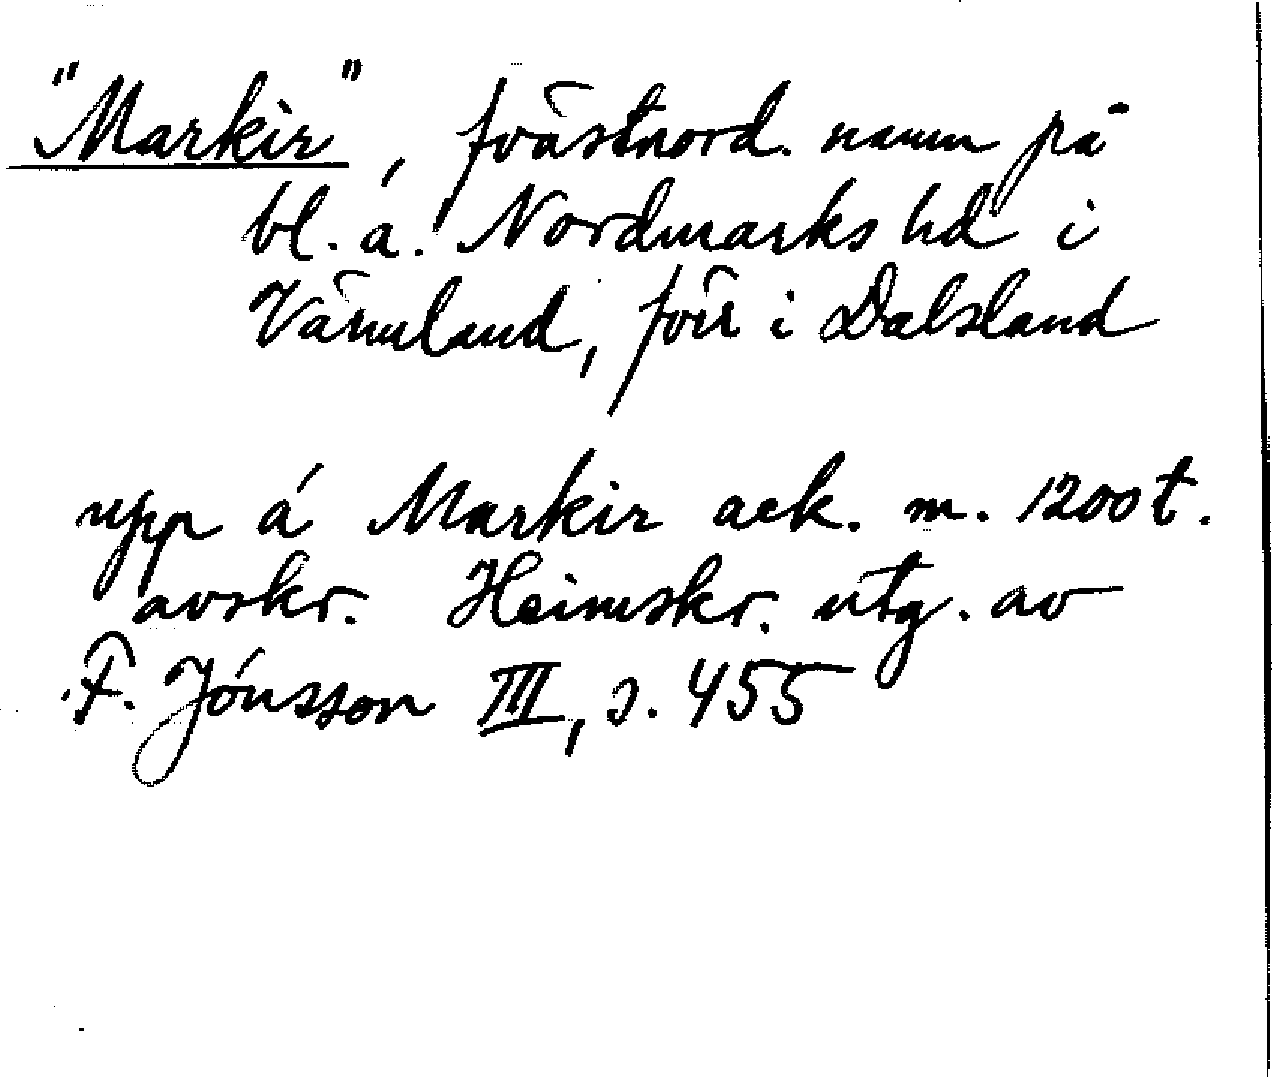 "Markir", fvästnord. namn på
bl. a. Nordmarks hd i
Värmland, förr i Dalsland
upp á Markir ack. m. 1200t.
avskr. Heimskr. utg. av
F. Jónsson III, s. 455